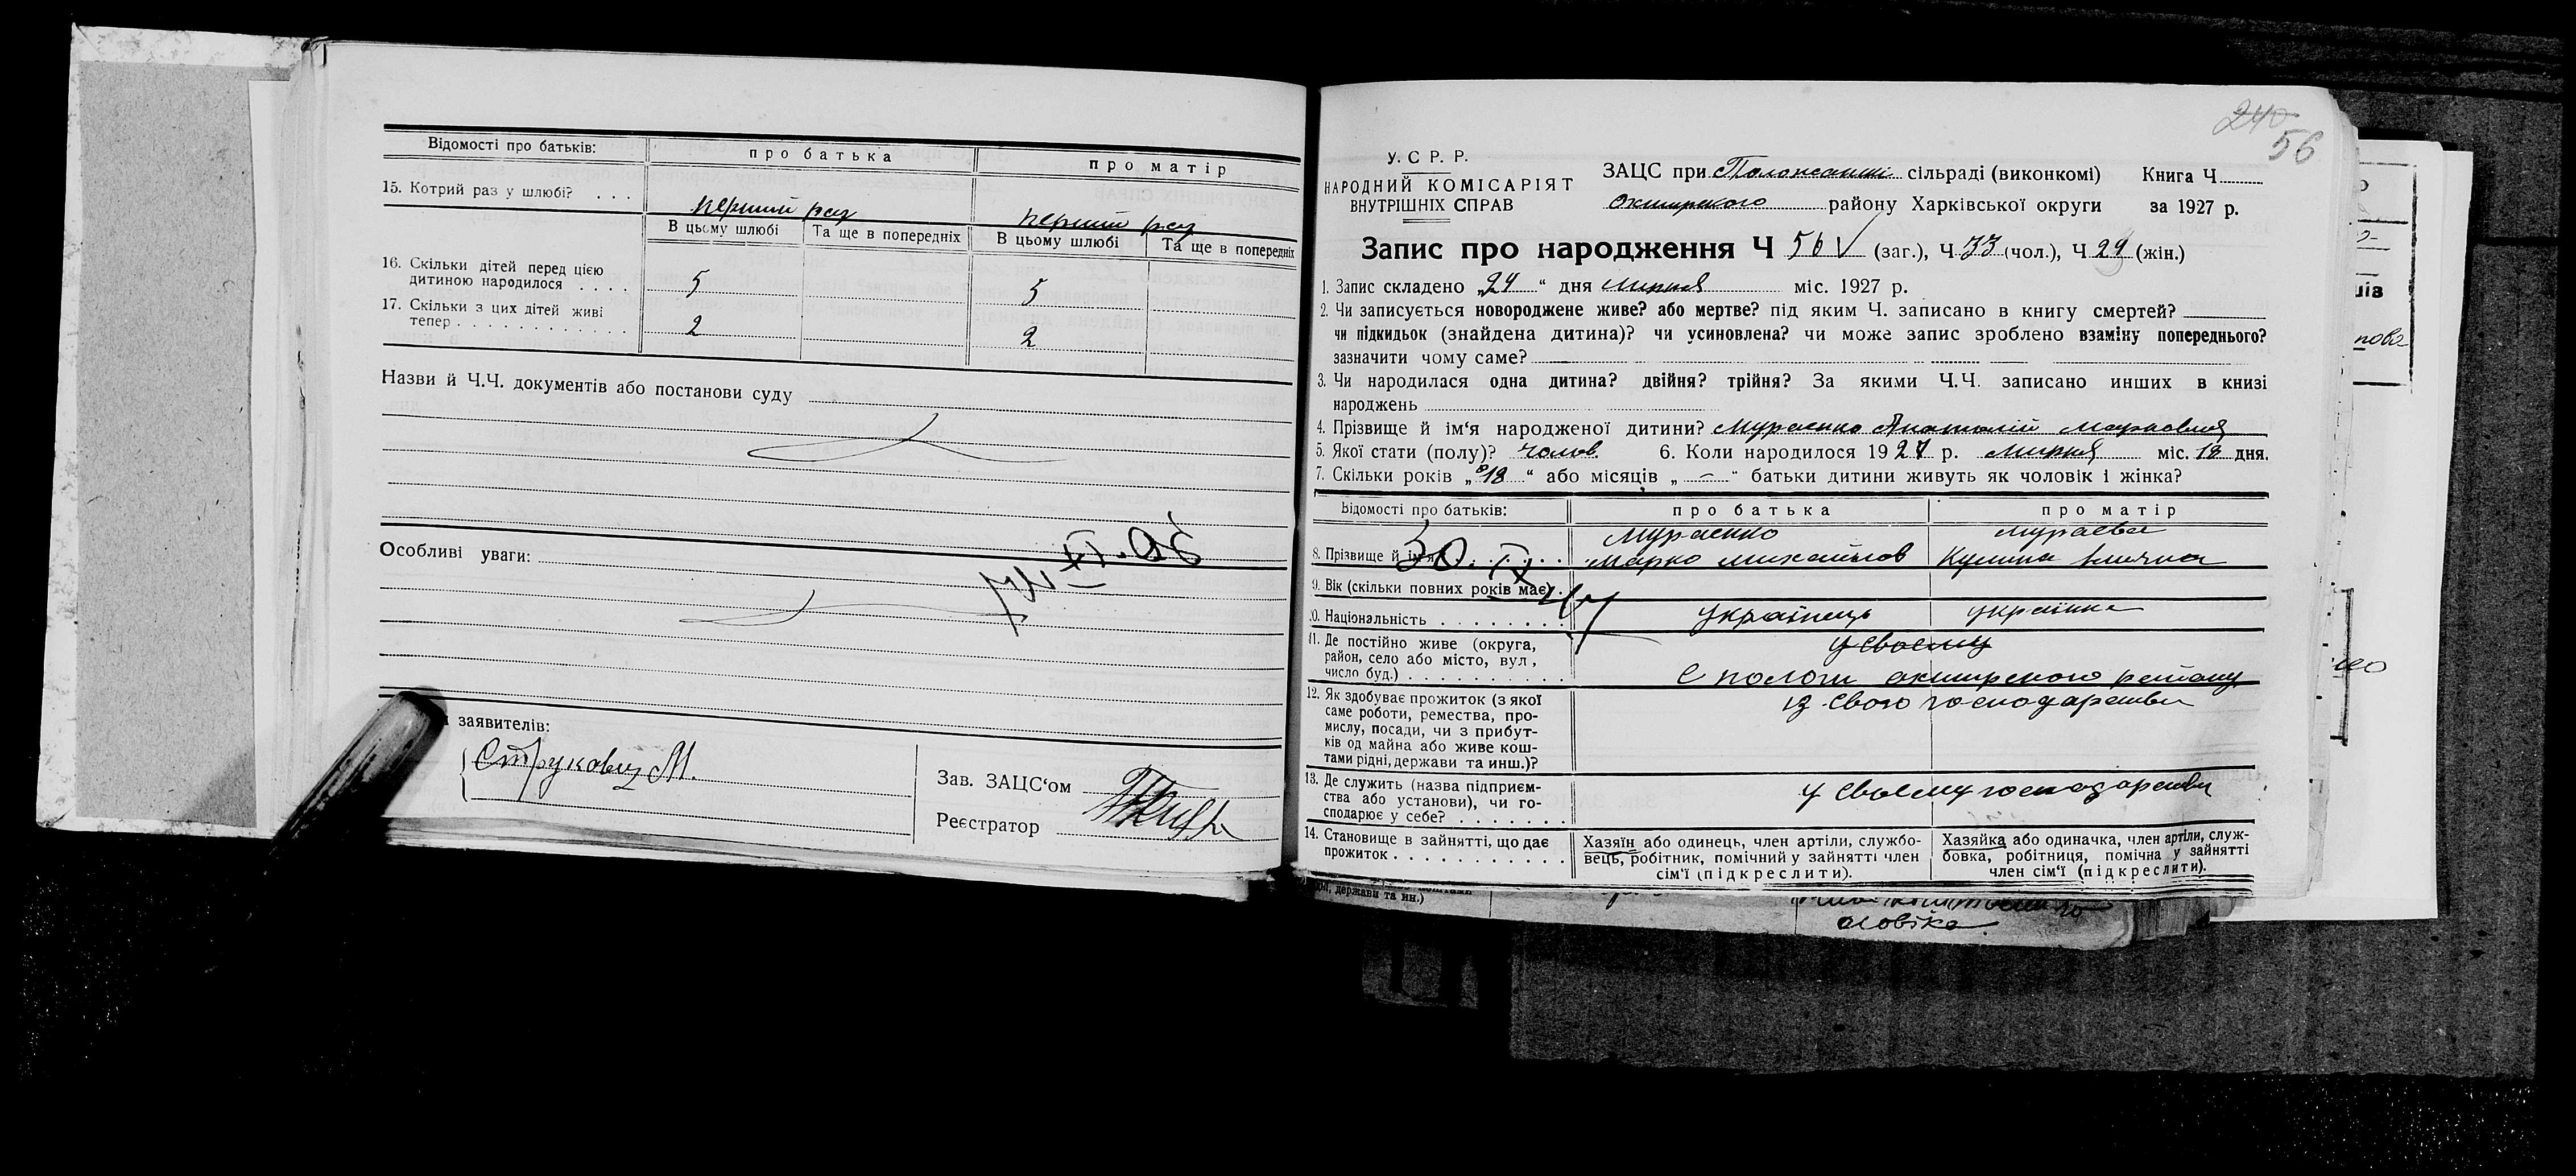 Відомості про батьків: про батька про матір
15. Котрий раз у шлюбі? . . . перший раз перший раз
В цьому шлюбі Та ще в попередніх В цьому шлюбі Та ще в попередніх
16. Скільки дітей перед цією
дитиною народилося . . . . 5 5
17. Скільки з цих дітей живі
тепер . . . . . . . . . . . . . 2 2
Назви й Ч.Ч. документів або постанови суду
Особливі уваги:
заявителів:
М.
Зав. ЗАЦС‘ом
Реєстратор
240
56
У.С Р. Р.
НАРОДНИЙ КОМІСАРІЯТ
ВНУТРІШНІХ СПРАВ
ЗАЦС при сільраді (виконкомі) Книга Ч
району Харківської округи за 1927 р.
Запис про народження Ч 56 (заг.), Ч 33 (чол.), Ч 24 (жін.)
1. Запис складено „24“ дня липня міс. 1927 р.
2. Чи записується новороджене живе? або мертве? під яким Ч. записано в книгу смертей?
чи підкидьок (знайдена дитина)? чи усиновлена? чи може запис зроблено взаміну попереднього?
зазначити чому саме?
3. Чи народилася одна дитина? двійня? трійня? За якими Ч.Ч. записано инших в книзі
народжень
4. Прізвище й ім‘я народженої дитини? Мураєнко Анатолій Маркович
5. Якої стати (полу)? чолов. 6. Коли народилося 1927 р. липня міс. 18 дня.
7. Скільки років „18“ або місяців „—“ батьки дитини живуть як чоловік і жінка?
Відомості про батьків: про батька про матір
Мураєнко
8. Прізвище й ім‘я Марко Михайлов Кулина
30. IV
9. Вік (скільки повних років має) .
47
10. Національність . . . . . . . . українець українка
11. Де постійно живе (округа, у своєму
район, село або місто, вул,
число буд.) . . . . . . . . . . С пологи району
12. Як здобуває прожиток (з якої із свого господарства
саме роботи, ремества, про-
мислу, посади, чи з прибут-
ків од майна або живе кош-
тами рідні, держави та инш.)?
13. Де служить (назва підприєм- у своєму господарстві
ства або установи), чи го-
сподарює у себе? . . . . . . .
14. Становище в зайнятті, що дає Хазяїн або одинець, член артіли, службо- Хазяйка або одиначка, член артіли, служ-
прожиток . . . . . . . . . . . вець, робітник, помічний у зайнятті член бовка, робітниця, помічна у зайнятті
сім‘ї (підкреслити). член сім‘ї (підкреслити).
держави та ин.)